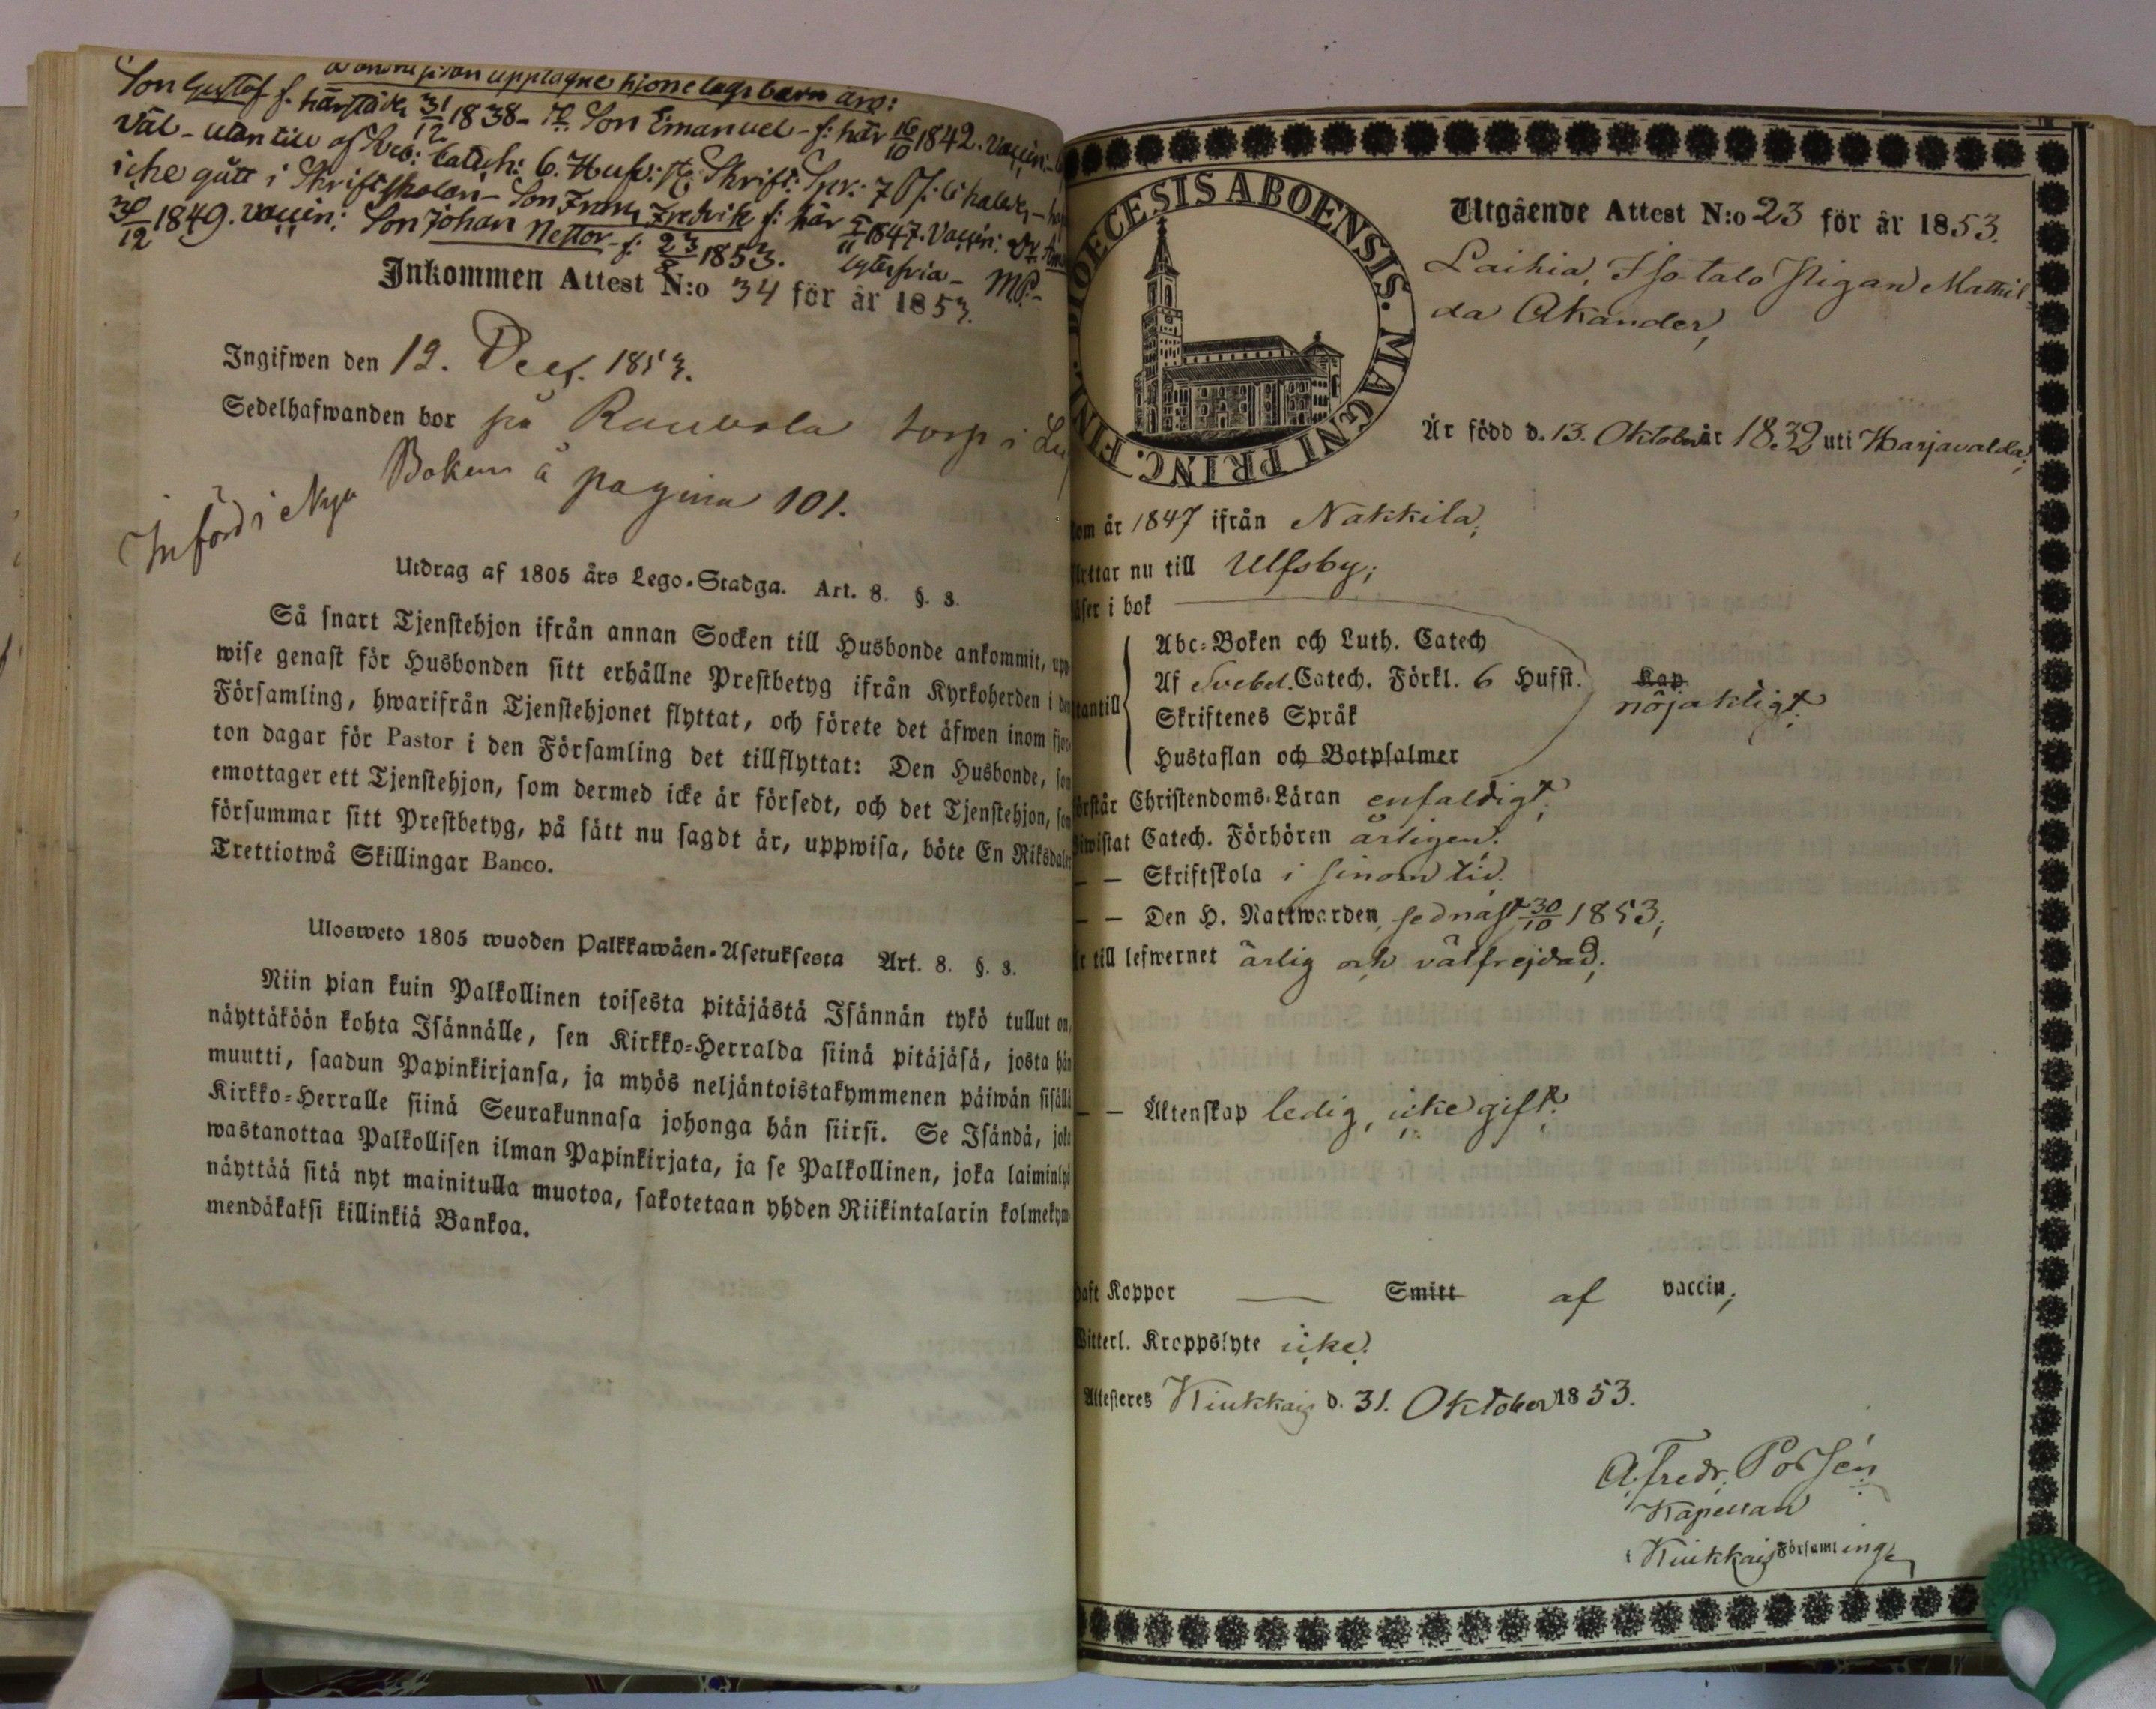 upptagne hjonelagsbarn äro:
Son Gustaf f. härstädes 31/12 1838 - Son Emanuel - f: här 16/10 1842. Vaccin:
Väl - utantill af Sveb: Catech: 6. Hufv: st; Skrift: Spr: 7
icke gått i Skriftskolan - Son Frans Fredrik f: här 1847. Vaccin:
30/12 1849. vaccin: Son Johan Nestor f: 23/8 1853. lytesfria - M.P.-
Inkommen Attest N:o 34 för år 1853.
Ingifwen den 12. Dec. 1853.
Sedelhafwanden bor på Raukola torp i
Införd i Nya Boken å pagina 101.
Utdrag af 1805 års Lego-Stadga. Art. 8. §. 3.
Så snart Tjenstehjon ifrån annan Socken till Husbonde ankommit, upp
wise genast för Husbonden sitt erhållne Prestbetyg ifrån Kyrkoherden i den
Församling, hwarifrån Tjenstehjonet flyttat, och förete det äfwen inom fjor
ton dagar för Pastor i den Församling det tillflyttat: Den Husbonde, som
emottager ett Tjenstehjon, som dermed icke är försedt, och det Tjenstehjon, som
försummar sitt Prestbetyg, på sätt nu sagdt är, uppwisa, böte En Riksdaler
Trettiotwå Skillingar Banco.
Ulosweto 1805 wuoden Palkkawäen-Asetuksesta Art. 8. §. 3.
Niin pian kuin Palkollinen toisesta pitäjästä Isännän tykö tullut on,
näyttäköön kohta Isännälle, sen Kirkko-Herralda siinä pitäjäsä, josta hän
muutti, saadun Papinkirjansa, ja myös neljäntoistakymmenen päiwän sisällä
Kirkko-Herralle siinä Seurakunnasa johonga hän siirsi. Se Isändä, joka
wastanottaa Palkollisen ilman Papinkirjata, ja se Palkollinen, joka laiminlyö
näyttää sitä nyt mainitulla muotoa, sakotetaan yhden Riikintalarin kolmekym
mendäkaksi killinkiä Bankoa.
DIOECESIS ABOENSIS. MAGNI PRINC. FINL.
Utgående Attest N:o 23 för år 1853.
Laihia, Isotalo Pigan Mathil
da Akander,
Är född d. 13. Oktober år 1832 uti Harjavalda;
kom år 1847 ifrån Nakkila;
flyttar nu till Ulfsby;
läser i bok
utantill
Abc-Boken och Luth. Catech
Af Svebel. Catech. Förkl. 6 Hufst. Kap
Skriftenes Språk nöjaktigt.
Hustaflan och Botpsalmer
förstår Christendoms-Läran enfaldigt;
biwistat Catech. Förhören årligen.
— — Skriftskola i sinom tid.
— — Den H. Nattwarden, sednast 30/10 1853;
Är till lefwernet ärlig och välfrejdad;
— — Äktenskap ledig, icke gift.
haft Koppor — Smitt af vaccin;
Witterl. Kroppslyte icke.
Attesteres Kiukkais d. 31. Oktober 1853.
A. Fredr. Porsén
Kapellan
i Kiukkais Församling